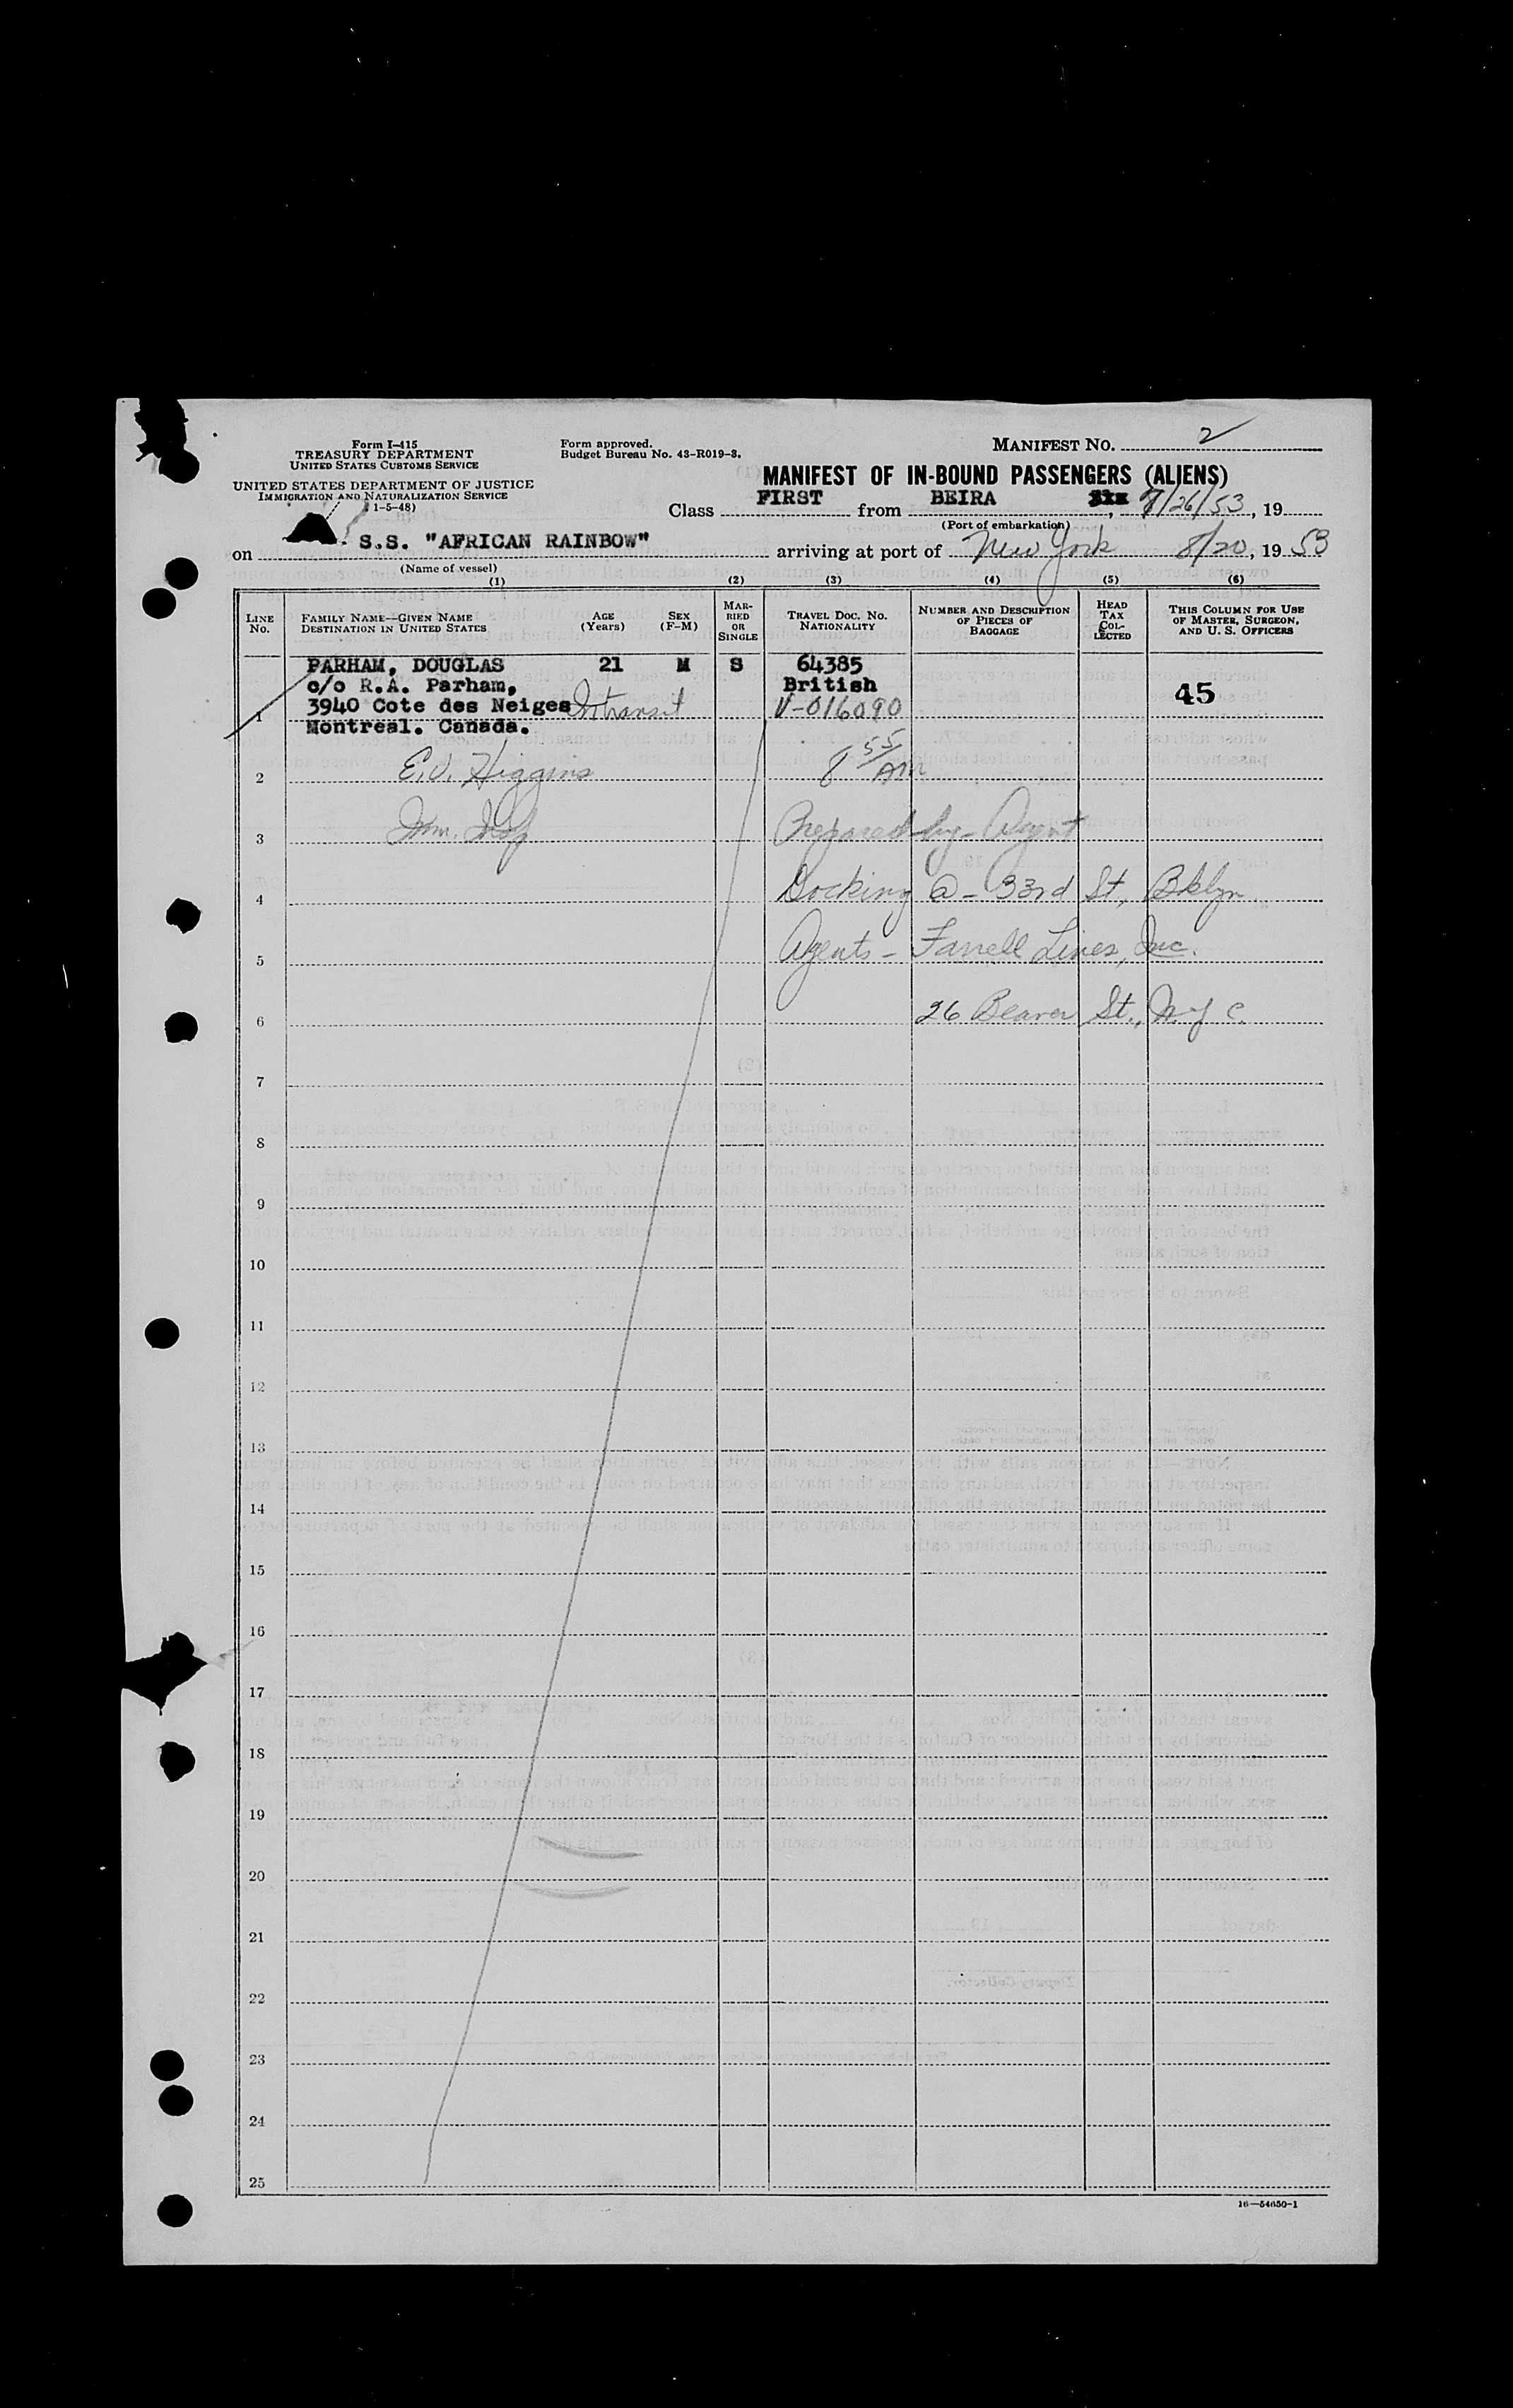 Form I-415
TREASURY DEPARTMENT
UNITED STATES CUSTOMS SERVICE
UNITED STATES DEPARTMENT OF JUSTICE
IMMIGRATION AND NATURALIZATION SERVICE
1-5-48)
Form approved.
Budget Bureau No. 43-R019-3.
MANIFEST NO. 2
MANIFEST OF IN-BOUND PASSENGERS (ALIENS)
Class FIRST from BEIRA, 7/26/53, 19
(Port of embarkation)
on S.S. "AFRICAN RAINBOW" arriving at port of New York 8/20, 19 53
(Name of vessel)
(1) (2) (3) (4) (5) (6)
LINE NO. FAMILY NAME—GIVEN NAME DESTINATION IN UNITED STATES AGE (Years) SEX (F-M) MARRIED OR SINGLE TRAVEL DOC. NO. NATIONALITY NUMBER AND DESCRIPTION OF PIECES OF BAGGAGE HEAD TAX COLLECTED THIS COLUMN FOR USE OF MASTER, SURGEON, AND U. S. OFFICERS
PARHAM, DOUGLAS 21 M S 64385
c/o R.A. Parham, British 45
1 3940 Cote des Neiges Intransit V-016090
Montreal. Canada.
2 E.V. Higgins 8 55 AM
3 Imm. Insp Prepared by Agent
4 Docking @ - 33rd St, Bklyn
5 Agents - Farrell Lines, Inc.
6 26 Beaver St., N.Y.C.
7
8
9
10
11
12
13
14
15
16
17
18
19
20
21
22
23
24
25
16—54650-1